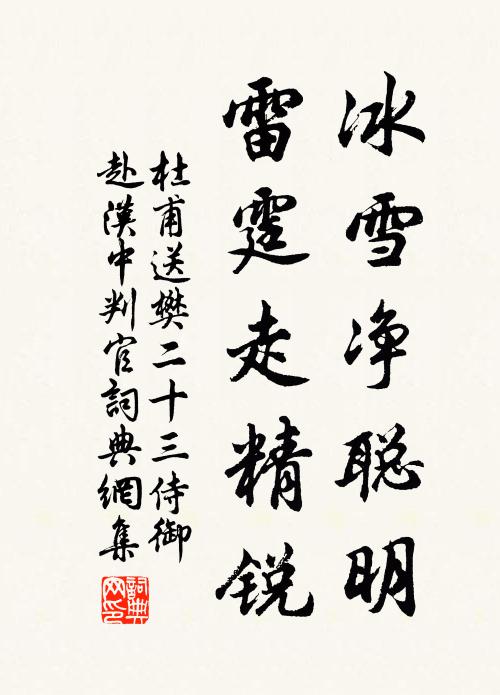 冰雪净聪明
雷霆走精锐
杜甫送樊二十三侍御
赴漢中判官詞典網集
詞典
网印